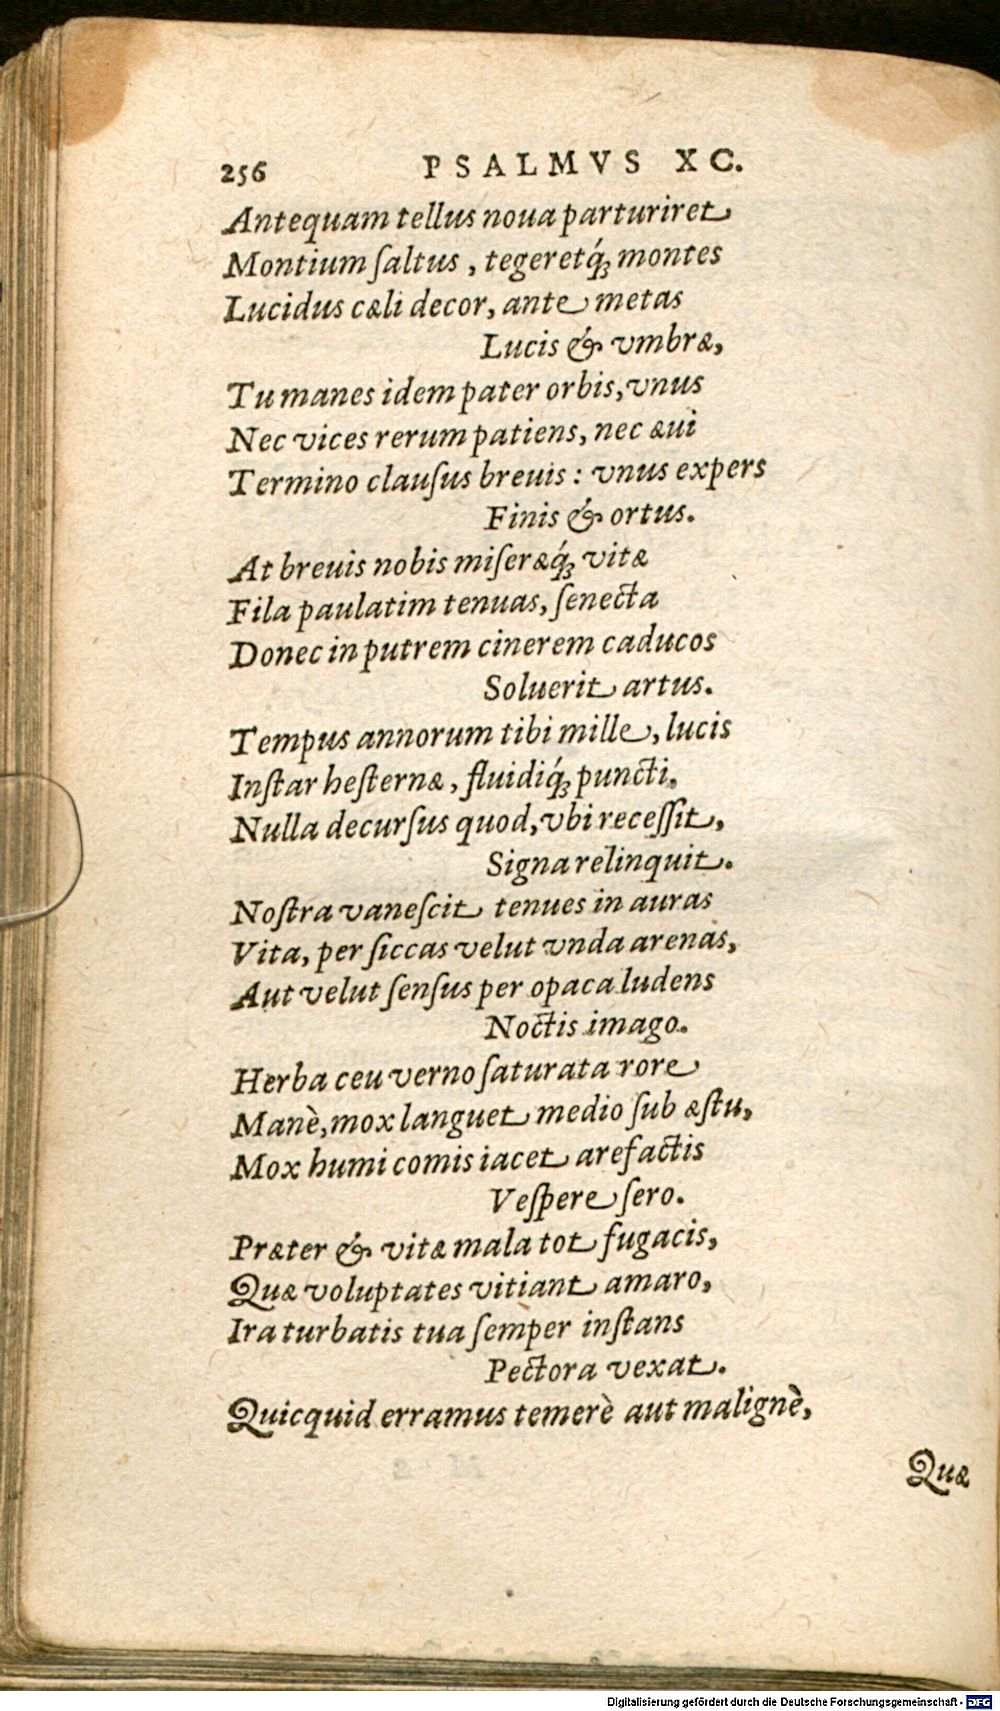 256 PSALMVS XC.
Antequam tellus noua parturiret
Montium ſaltus, tegeretq́; montes
Lucidus cæli decor, ante metas
Lucis & vmbræ,
Tu manes idem pater orbis, vnus
Nec vices rerum patiens, nec æui
Termino clauſus breuis: vnus expers
Finis & ortus.
At breuis nobis miſeræq́; vitæ
Fila paulatim tenuas, ſenecta
Donec in putrem cinerem caducos
Soluerit artus.
Tempus annorum tibi mille, lucis
Inſtar heſternæ, fluidiq́; puncti,
Nulla decurſus quod, vbi receſſit,
Signa relinquit.
Noſtra vaneſcit tenues in auras
Vita, per ſiccas velut vnda arenas,
Aut velut ſenſus per opaca ludens
Noctis imago.
Herba ceu verno ſaturata rore
Manè, mox languet medio ſub æſtu,
Mox humi comis iacet arefactis
Veſpere ſero.
Præter & vitæ mala tot fugacis,
Quæ voluptates vitiant amaro,
Ira turbatis tua ſemper inſtans
Pectora vexat.
Quicquid erramus temerè aut malignè,
Quæ
Digitalisierung gefördert durch die Deutsche Forschungsgemeinschaft - DFG